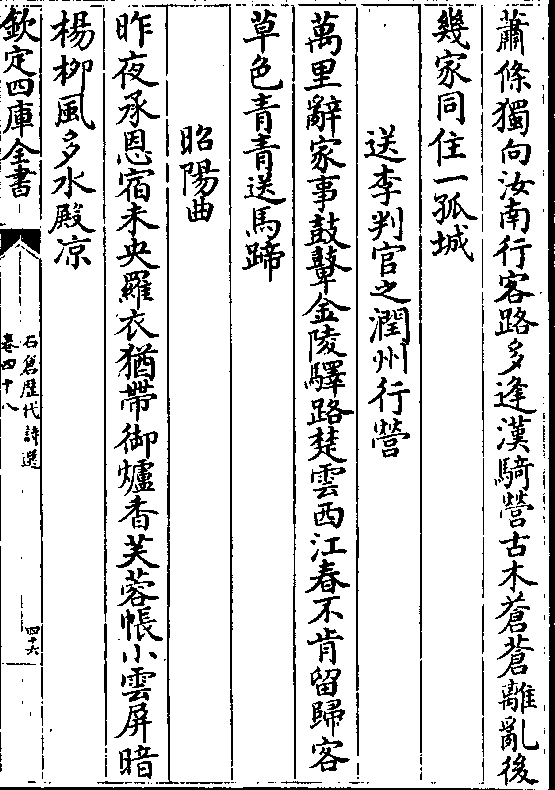 蕭條獨向汝南行客路多逢漢騎營古木蒼蒼離亂後
幾家同住一孤城
送李判官之潤州行營
萬里辭家事鼓鼙金陵驛路楚雲西江春不肯留歸客
草色青青送馬蹄
昭陽曲
昨夜承恩宿未央羅衣猶帶御爐香芙蓉帳小雲屏暗
楊柳風多水殿凉
欽定四庫全書
石倉歷代詩選
卷四十八
四十六